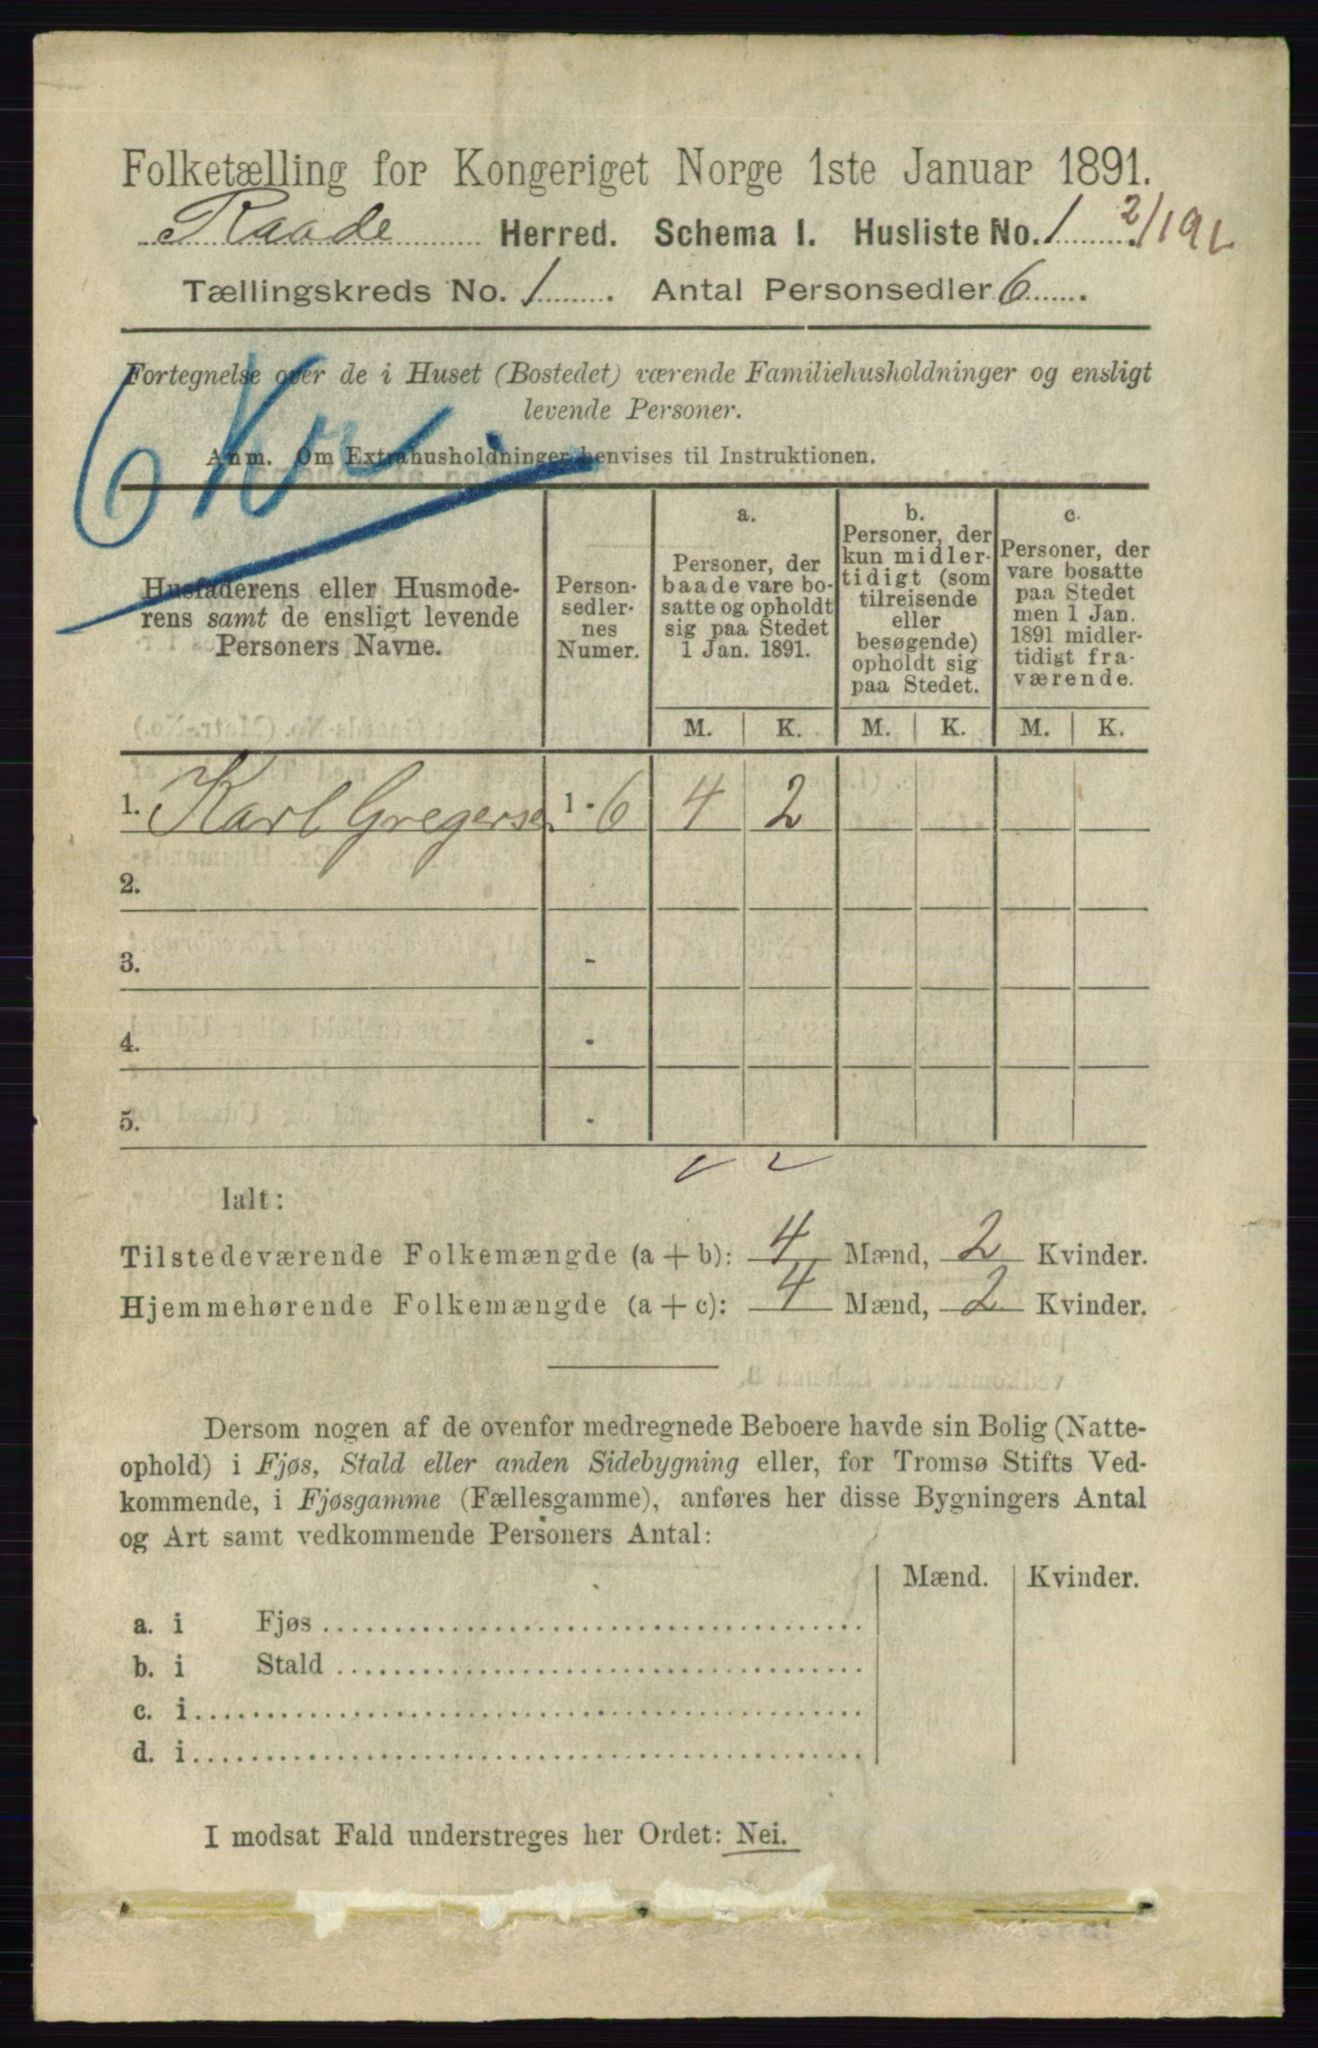 Folketælling for Kongeriget Norge 1ste Januar 1891.
Raade Herred. Schema I. Husliste No. 1 2/191
Tællingskreds No. 1. Antal Personsedler 6
Fortegnelse over de i Huset (Bostedet) værende Familiehusholdninger og ensligt
levende Personer.
Anm. Om Extrahusholdninger henvises til Instruktionen.
Husfaderens eller Husmode-
rens samt de ensligt levende
Personers Navne.
Person-
sedler-
nes
Numer.
a.
Personer, der
baade vare bo-
satte og opholdt
sig paa Stedet
1 Jan. 1891.
b.
Personer, der
kun midler-
tidigt (som
tilreisende
eller
besøgende)
opholdt sig
paa Stedet.
c.
Personer, der
vare bosatte
paa Stedet
men 1 Jan.
1891 midler-
tidigt fra-
værende.
M. K. M. K. M. K.
1. Karl Gregersen 1 - 6 4 2
2.
3. -
4. -
5. -
Ialt:
Tilstedeværende Folkemængde (a + b): 4 Mænd, 2 Kvinder.
Hjemmehørende Folkemængde (a + c): 4 Mænd, 2 Kvinder.
Dersom nogen af de ovenfor medregnede Beboere havde sin Bolig (Natte-
ophold) i Fjøs, Stald eller anden Sidebygning eller, for Tromsø Stifts Ved-
kommende, i Fjøsgamme (Fællesgamme), anføres her disse Bygningers Antal
og Art samt vedkommende Personers Antal:
Mænd. Kvinder.
a. i Fjøs
b. i Stald
c. i
d. i
I modsat Fald understreges her Ordet: Nei.